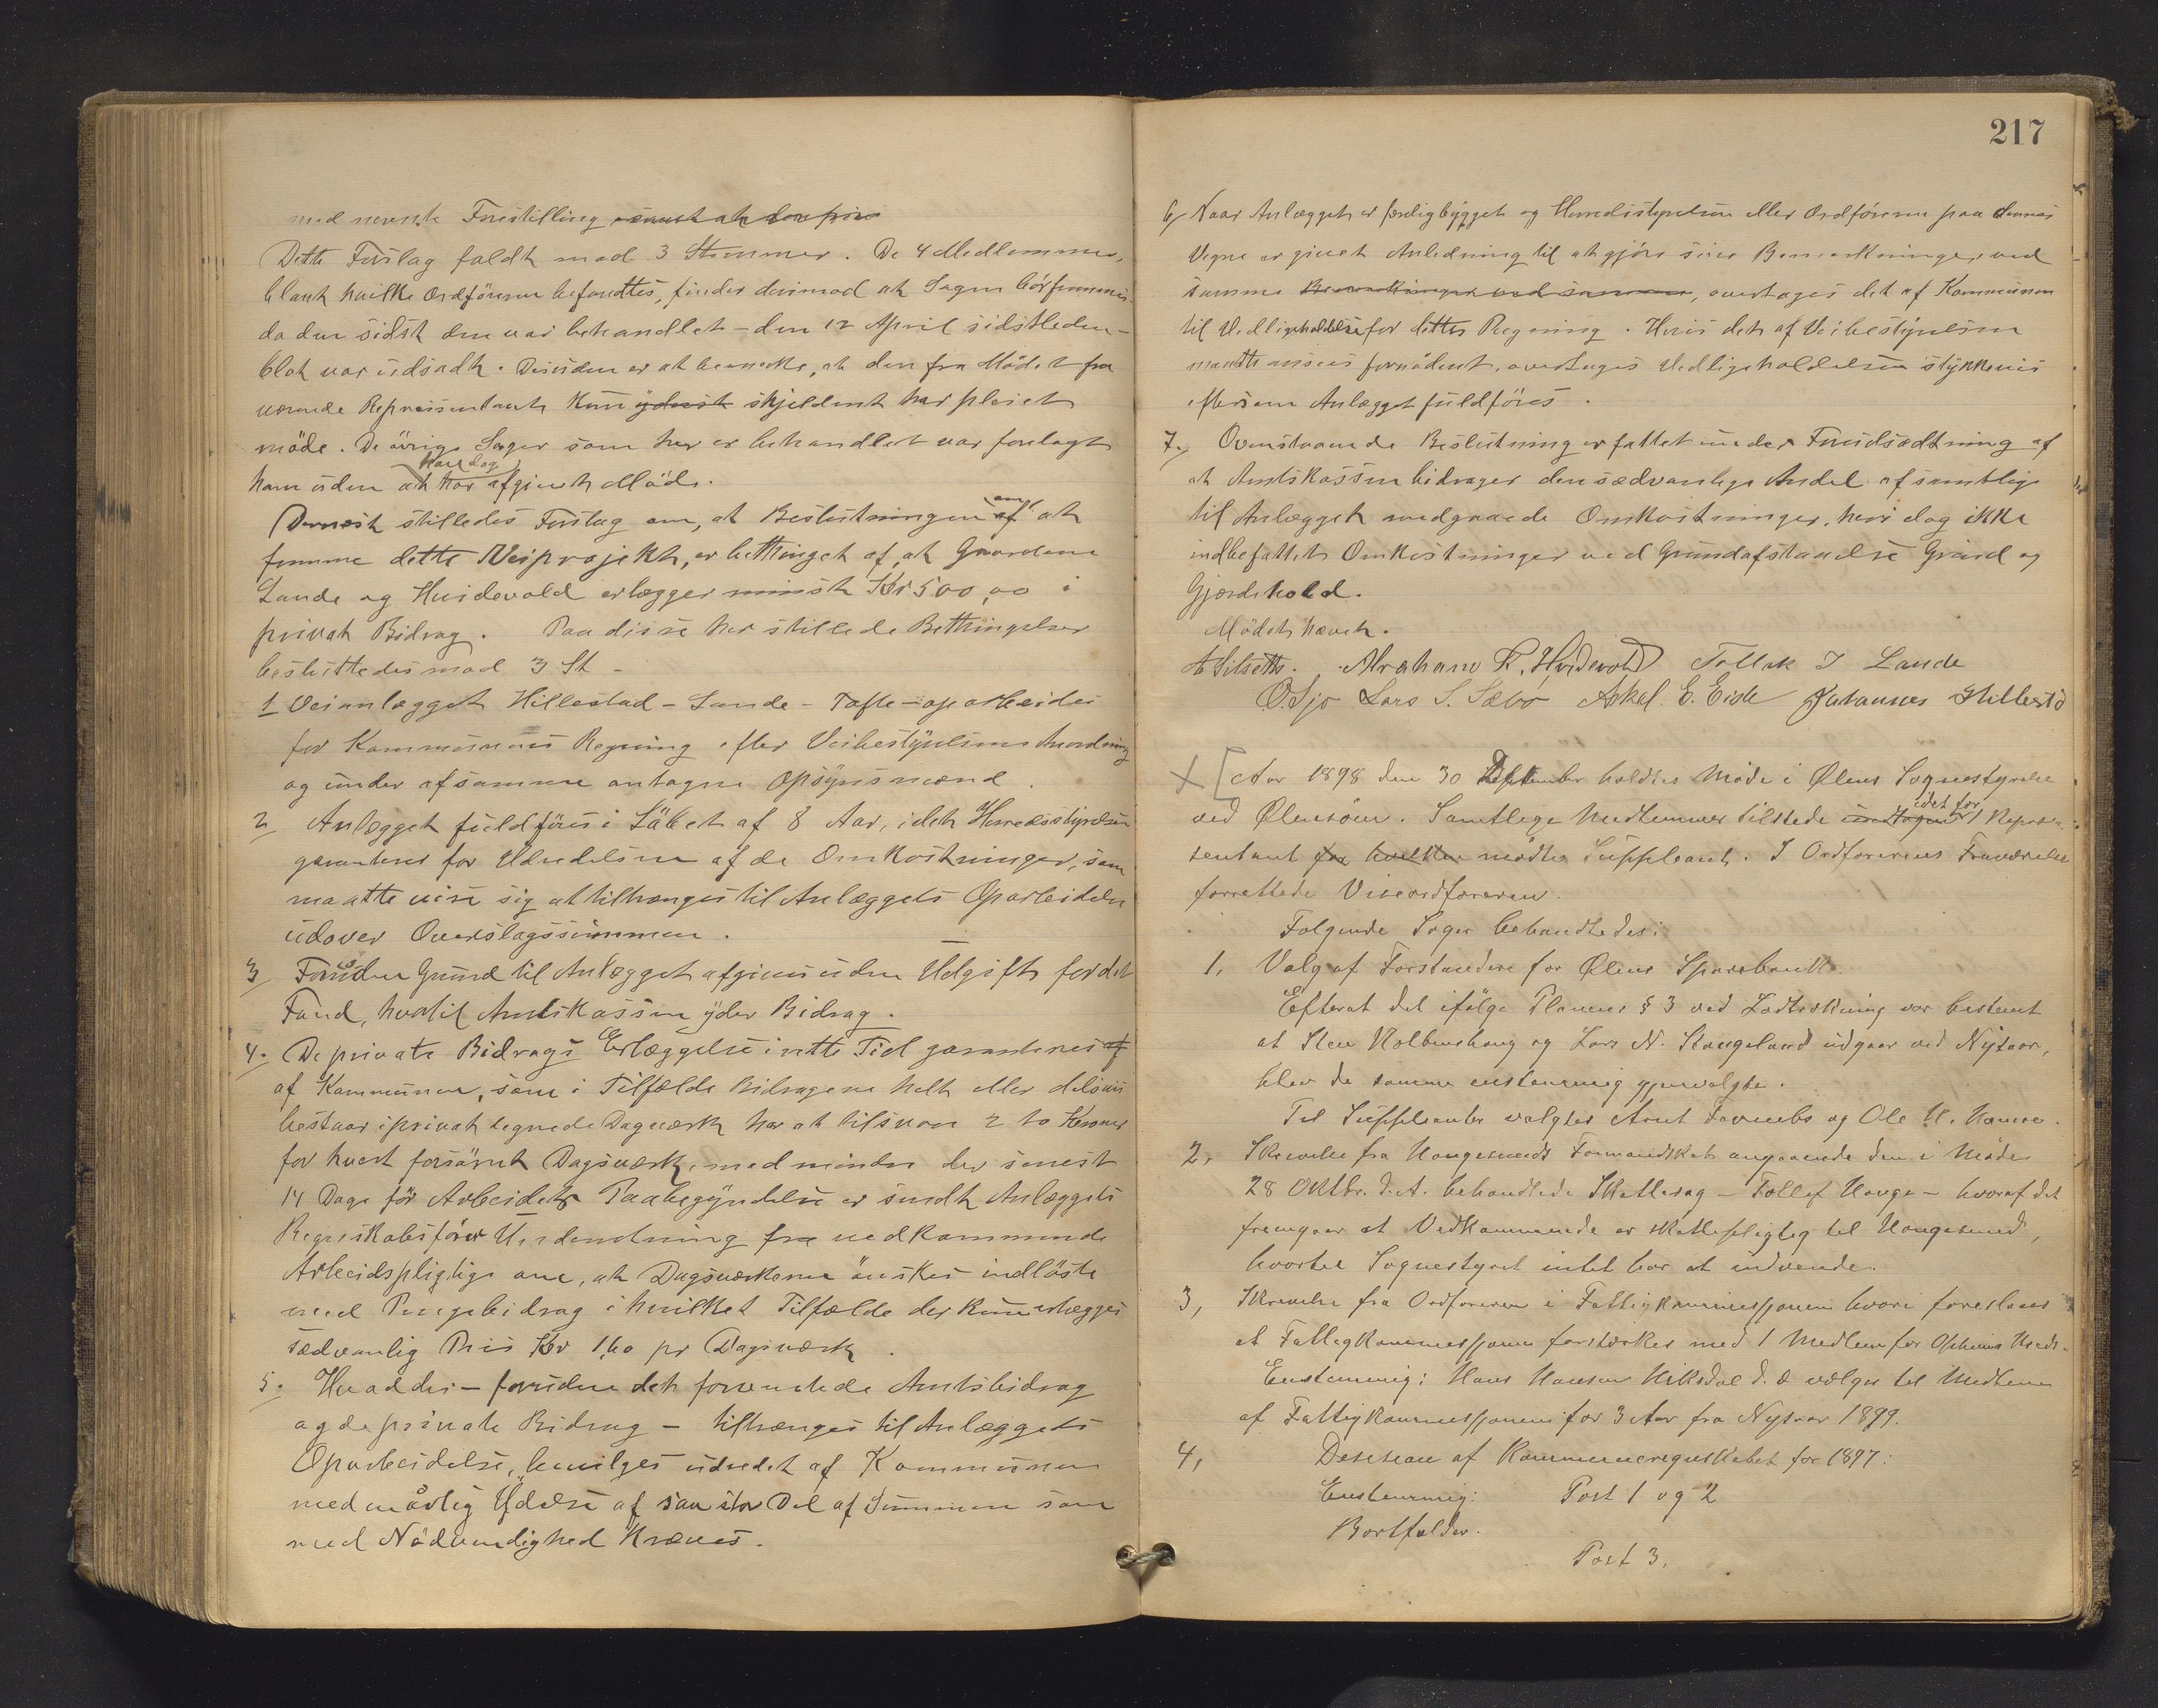 med nevnte Forestilling
Dette Forslag faldt mod 3 Stemmer. De 4 Medlemmer,
blant hvilke Ordföreren befandtes, finder derimod at Sagen bör fremmes
da den sidst den var behandlet - den 12 April sidstleden -
blot var udsadt. Desuden er at bemerke, at den fra Mödet fra
værende Repræsentant kun skjeldent har pleiet
möde. De övrige Sager som her er behandlet var forelagt
ham uden at han dog har afgivet Möde.
Dernæst stilledes Forslag om, at Beslutningen om at
fremme dette Veiprojekt, er bettinget af, at Gaardene
Lande og Hvidevold erlægger minst Kr 500,00 i
privat Bidrag. Paa disse her stillede Bettingelser
besluttedes mod 3 St -
1 Veianlægget Hillestad - Lande - Tofte - oparbeides
for Kommunens Regning efter Veibestyrelsens Anordning
og under af samme antagne Opsynsmænd.
2 Anlægget fuldföres i Löbet af 8 Aar, idet Herredsstyrelsen
garanterer for Udredelsen af de Omkostninger, som
maatte vise sig at tiltrænges til Anlæggets Oparbeidelse
udover Overslagssummen.
3 Fornöden Grund til Anlægget afgives uden Udgift for det
Fond, hvortil Amtskassen yder Bidrag.
4. De private Bidrags Erlæggelse i rette Tid garanteres
af Kommunen, som i Tilfælde Bidragene helt eller delsvis
bestaar i privat tegnede Dagsverk har at tilsvare 2 to Kroner
for hvert forsömt Dagsværk, med mindre der senest
14 Dage för Arbeidets Paabegyndelse er sendt Anlæggets
Regnskabsförer Underretning fra vedkommende
Arbeidspligtige om, at Dagsværkerne önskes indlöste
med Pengebidrag i hvilket Tilfælde der kun erlægges
sædvanlig Pris Kr 1,60 pr Dagsværk.
5. Hvad der - foruden det forventede Amtsbidrag
og de private Bidrag - tiltrænges til Anlæggets
Oparbeidelse, bevilges udredet af Kommunen
med aarlig Ydelse af saa stor Del af Summen som
med Nödvendighed kræves.
217
6 Naar Anlægget er færdigbygget og Herredsstyrelsen eller Ordföreren paa dennes
Vegne er givet Anledning til at gjöre sine Bemerkninger ved
samme Bemerkninger ved samme, overtages det af Kommunen
til Vedligeholdelse for dettes Regning. Hvis det af Veibestyrelsen
maatte ansees fornödent, overtages Vedligeholdelsen stykkevis
eftersom Anlægget fuldföres.
7. Ovenstaaende Beslutning er fattet under Forudsædtning af
at Amtskassen bidrager den sædvanlige Andel af samtlige
til Anlægget medgaaede Omkostninger, heri dog ikke
indbefattet Omkostninger ved Grundafstaaelse Grind og
Gjærdehold.
Mödet hævet.
Abraham K. Hvidevold Tollak J Lande
O. Sjo Lars S. Sæbø Askel. E. Eide Johannes Hillestd
Aar 1898 den 30 holdtes Møde i Ølens Sognestyrelse
ved Ølensöen. Samtlige Medlemmer tilstede undtagen idet for 1 Repræ-
sentant fra hvilken mødte Suppleant. I Ordførerens Fraværelse
forrettede Viseordføreren.
Følgende Sager behandledes:
1, Valg af Forstandere for Ølens Sparebank.
Efterat det ifölge Planens § 3 ved Lodtrækning var bestemt
at Sten Kolbenshaug og Lars N. Stangeland udgaar ved Nytaar,
blev de samme enstemmig gjenvalgte.
Til Suppleanter valgtes Arnt og Ole H. Hamre.
2, Skrivelse fra Haugesunds Formandskab angaaende den i Møde
28 Oktbr. d. A. behandlede Skattesag - Tollef Hauge - hvoraf det
fremgaar at Vedkommende er skattepligtig til Haugesund,
hvortil Sognestyret intet har at indvende.
3, Skrivelse fra Ordføreren i Fattigkommissionen hvori foreslaaes
at Fattigkommissionen forstærkes med 1 Medlem for Opheims Kreds.
Enstemmig: Hans Hansen Vikedal d. æ vælges til Medlem
af Fattigkommissionen for 3 Aar fra Nytaar 1899.
4, Desision af Kommuneregnskabet for 1897:
Enstemmig: Post 1 og 2
Bortfalder.
Post 3.